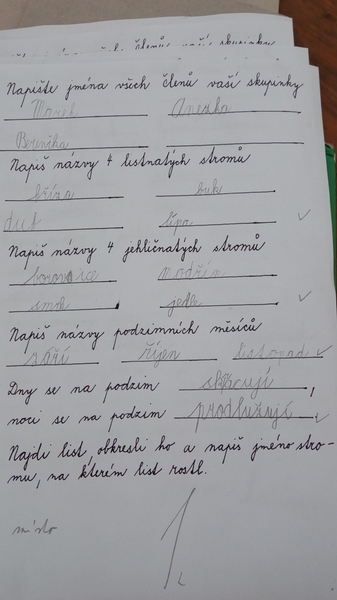 Napište jména všech členů vaší skupinky
Marek Anežka
Berenika
Napiš názvy 4 listnatých stromů
bříza buk
dub lípa
Napiš názvy 4 jehličnatých stromů
borovice modřín
smrk jedle
Napiš názvy podzimních měsíců
září říjen listopad
Dny se na podzim zkracují,
noci se na podzim prodlužují.
Najdi list, obkresli ho a napiš jméno stro-
mu, na kterém list rostl.
1